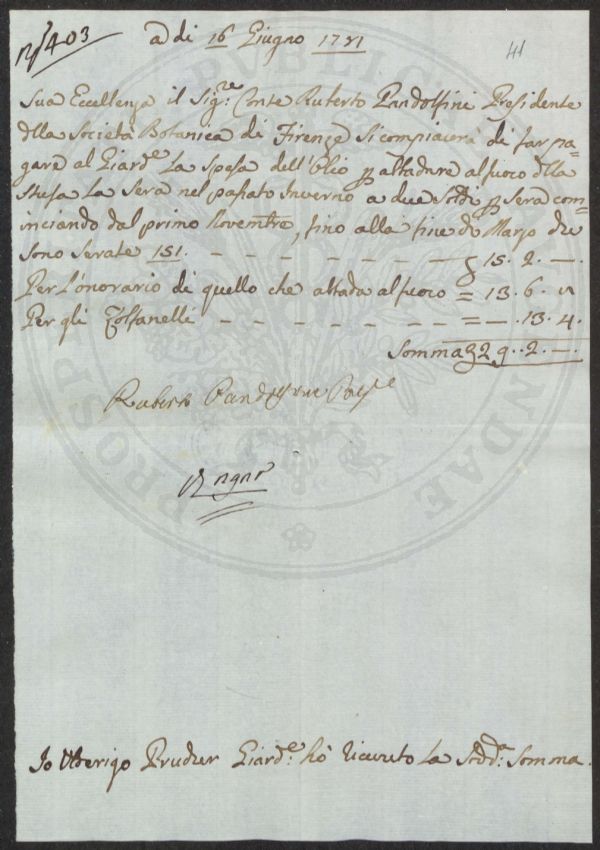 N° 403
41
A di 16 Giugno 1781
Sua Eccellenza il Sig.re Conte Ruberto Pandolfini Presidente
della Società Botanica di Firenze si compiacerà di far pa=
gare al Giard.e La Spesa dell'Olio p attadare al fuoco della
Stufa La Sera nel passato Inverno a due Soldi p Sera com=
inciando dal primo Novembre, fino alla fine di Marzo che
Sono Serate 151. – – – – – – – – ₤ 15. 2. –.
Per L'onorario di quello che attada al fuoco = 13. 6.
Per gli Zolfanelli – – – – – – – = –. 13. 4.
Somma ₤ 29. 2. –.
Ruberto Pandolfini Pres.e
Io Uberigo Prucker Giard.e hò ricevuto La Sudd.a Somma.
PUBLICA
PROSPERITATI AUGENDAE